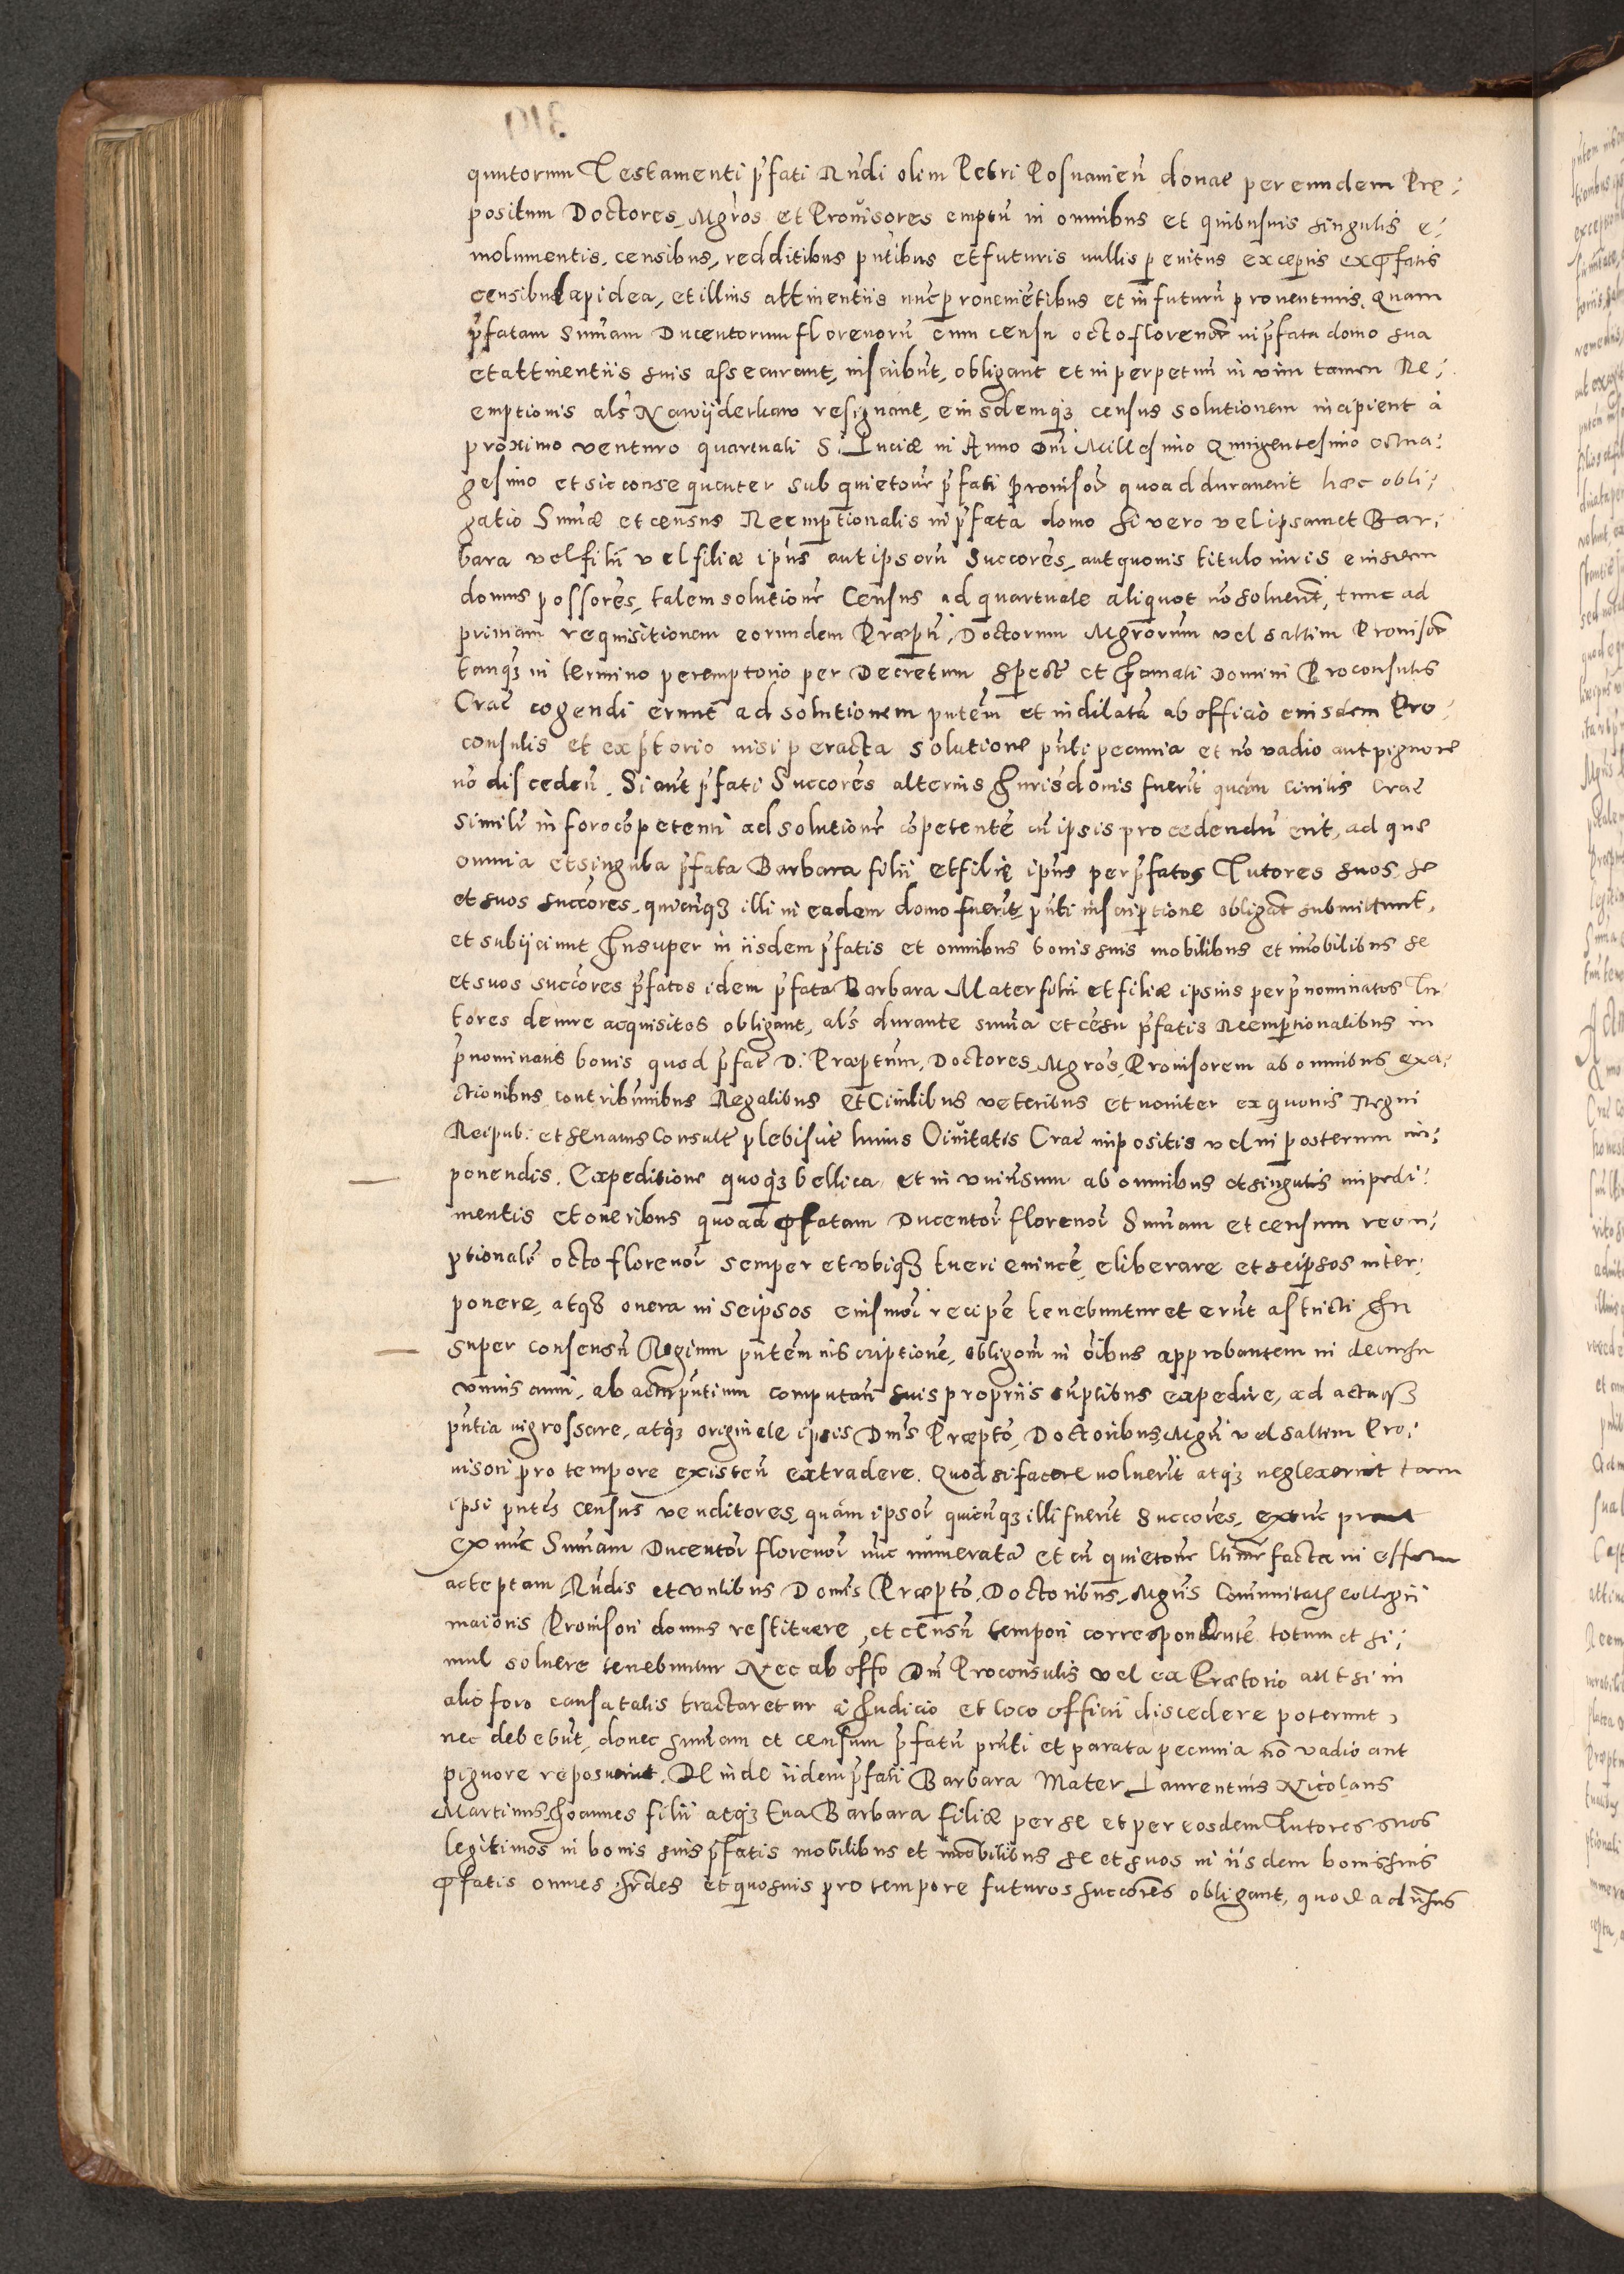 quutorum Testamenti p̃fati Rũdi olim Petri Posnanieñ donac per eundem Præ:
positum Doctores, Mgr̃os et Provisores emptũ in omnibus et quibusvis singulis e:
molumentis, censibus, redditibus pñtibus et futuris nullis penitus exceptis ex p̃fatis
censibus lapidea, et illius attinentiis nũc proveniẽtibus et in futurũ proventuris. Quam
p̃fatam Sum̃am Ducentorum florenorũ cum censu octo florenor̃ in p̃fata domo sua
et attinentiis suis assecurant, inscribũt, obligant et in perpetuũ in vim tamen Re:
emptionis al̃s Nawijderkaw resignant, eiusdemqȝ census solutionem incipient à
proximo venturo quartuali S: Luciæ in Anno Dñi Millesimo Quingentesimo octua:
gesimo et sic consequenter sub quietoñe p̃fati provisor̃ quoad duraverit hæc obli:
gatio Sum̃æ et census Reemptionalis in p̃fata domo si vero vel ipsamet Bar:
bara vel filii vel filiæ ipũs aut ipsorũ Succores, aut quovis titulo iuris eiusdem
domus possores, talem solutionẽ Census ad quartuale aliquot nõ solverĩt, tunc ad
primam requisitionem eorundem Præpti, Doctorum Mgrorum vel saltim Provisor̃
tanqȝ in termino peremptorio per Decretum Spect̃ et famati Domini Proconsulis
Crac̃ cogendi erunt ad solutionem pñtem et indilatã ab officio eiusdem Pro:
consulis et ex p̃torio nisi peracta solutione pñti pecunia et nõ vadio aut pignore
nõ discedeñ. Si aut̃ p̃fati Succores alterius Iurisdonis fuerĩt quàm civilis Crac̃
simili in foro cõpetenti ad solutionẽ cõpetentẽ cũ ipsis procedendũ erit, ad quæ
omnia et singula p̃fata Barbara filii et filiæ ipũs per p̃fatos Tutores suos, se
et suos succores, quicũqȝ illi in eadem domo fuerĩt pñti inscriptione obligãt submittunt,
et subijciunt Insuper in iisdem p̃fatis et omnibus bonis suis mobilibus et im̃obilibus se
et suos succores p̃fatos idem p̃fata Barbara Mater filii et filiæ ipsius per p̃nominatos Tu
tores de iure acquisitos obligant, al̃s durante sum̃a et cẽsu p̃fatis Reemptionalibus in
p̃nominatis bonis quod p̃fat̃ D: Præptum, Doctores, Mgr̃os, Provisorem ab omnibus exa:
ctionibus contribũnibus Regalibus et Civilibus veteribus et noviter ex quovis Regni
Reipub: et senatus Consult̃ plebisũt huius Civitatis Crac̃ impositis vel in posterum im:
ponendis. Expeditione quoqȝ bellica et in universum ab omnibus et singulis impedi:
mentis et oneribus quoad p̃fatam Ducentor̃ florenor̃ Sum̃am et censum reem:
ptionalẽ octo florenor̃ semper et ubiqȝ tueri evincẽ, eliberare et seipsos inter:
ponere, atqȝ onera in seipsos eiusmõi recipẽ tenebuntur et erũt astricti In
super consensũ Regium pñtem inscriptionẽ, obligoñi in oĩbus approbantem in decursu
unius anni, ab actor̃ pñtium computañ suis propriis sũptibus expedire, ad actaqȝ
pñtia ingrossare, atqȝ originale ipsis Dñis Præpto, Doctoribus, Mgri vel saltim Pro:
visori pro tempore existeñ extradere. Quod si facere noluerĩt atqȝ neglexerint tam
ipsi pñtes Census venditores, quàm ipsor̃ quicũqȝ illi fuerĩt Succores, extũc prout
ex nũc Sum̃am Ducentor̃ florenor̃ nũc numeratã et cũ quietoñe factæ in effem
acceptam Rũdis et Vnlibus Domis Præpto, Doctoribus, Mgris Com̃unitatis Collegii
maioris Provisori domus restituere, et censũ tempori correspondentẽ totum et si:
mul solvere tenebuntur Nec ab offo Dñi Proconsulis vel ex Prætorio aut si in
alio foro causa talis tractaretur à Iudicio et loco officii discedere poterunt,
nec debebũt, donec sum̃am et censum p̃fatũ pñti et parata pecunia nõ vadio aut
pignore reposuerĩt. Deinde iidem p̃fati Barbara Mater Laurentius Nicolaus
Martinus, Ioannes filii atqȝ Eva Barbara filiæ per se et per eosdem Tutores suos
legitimos in bonis suis p̃fatis mobilibus et im̃obilibus se et suos in iisdem bonis suis
p̃fatis omnes hr̃des et quosvis pro tempore futuros succores obligant, quod adversus